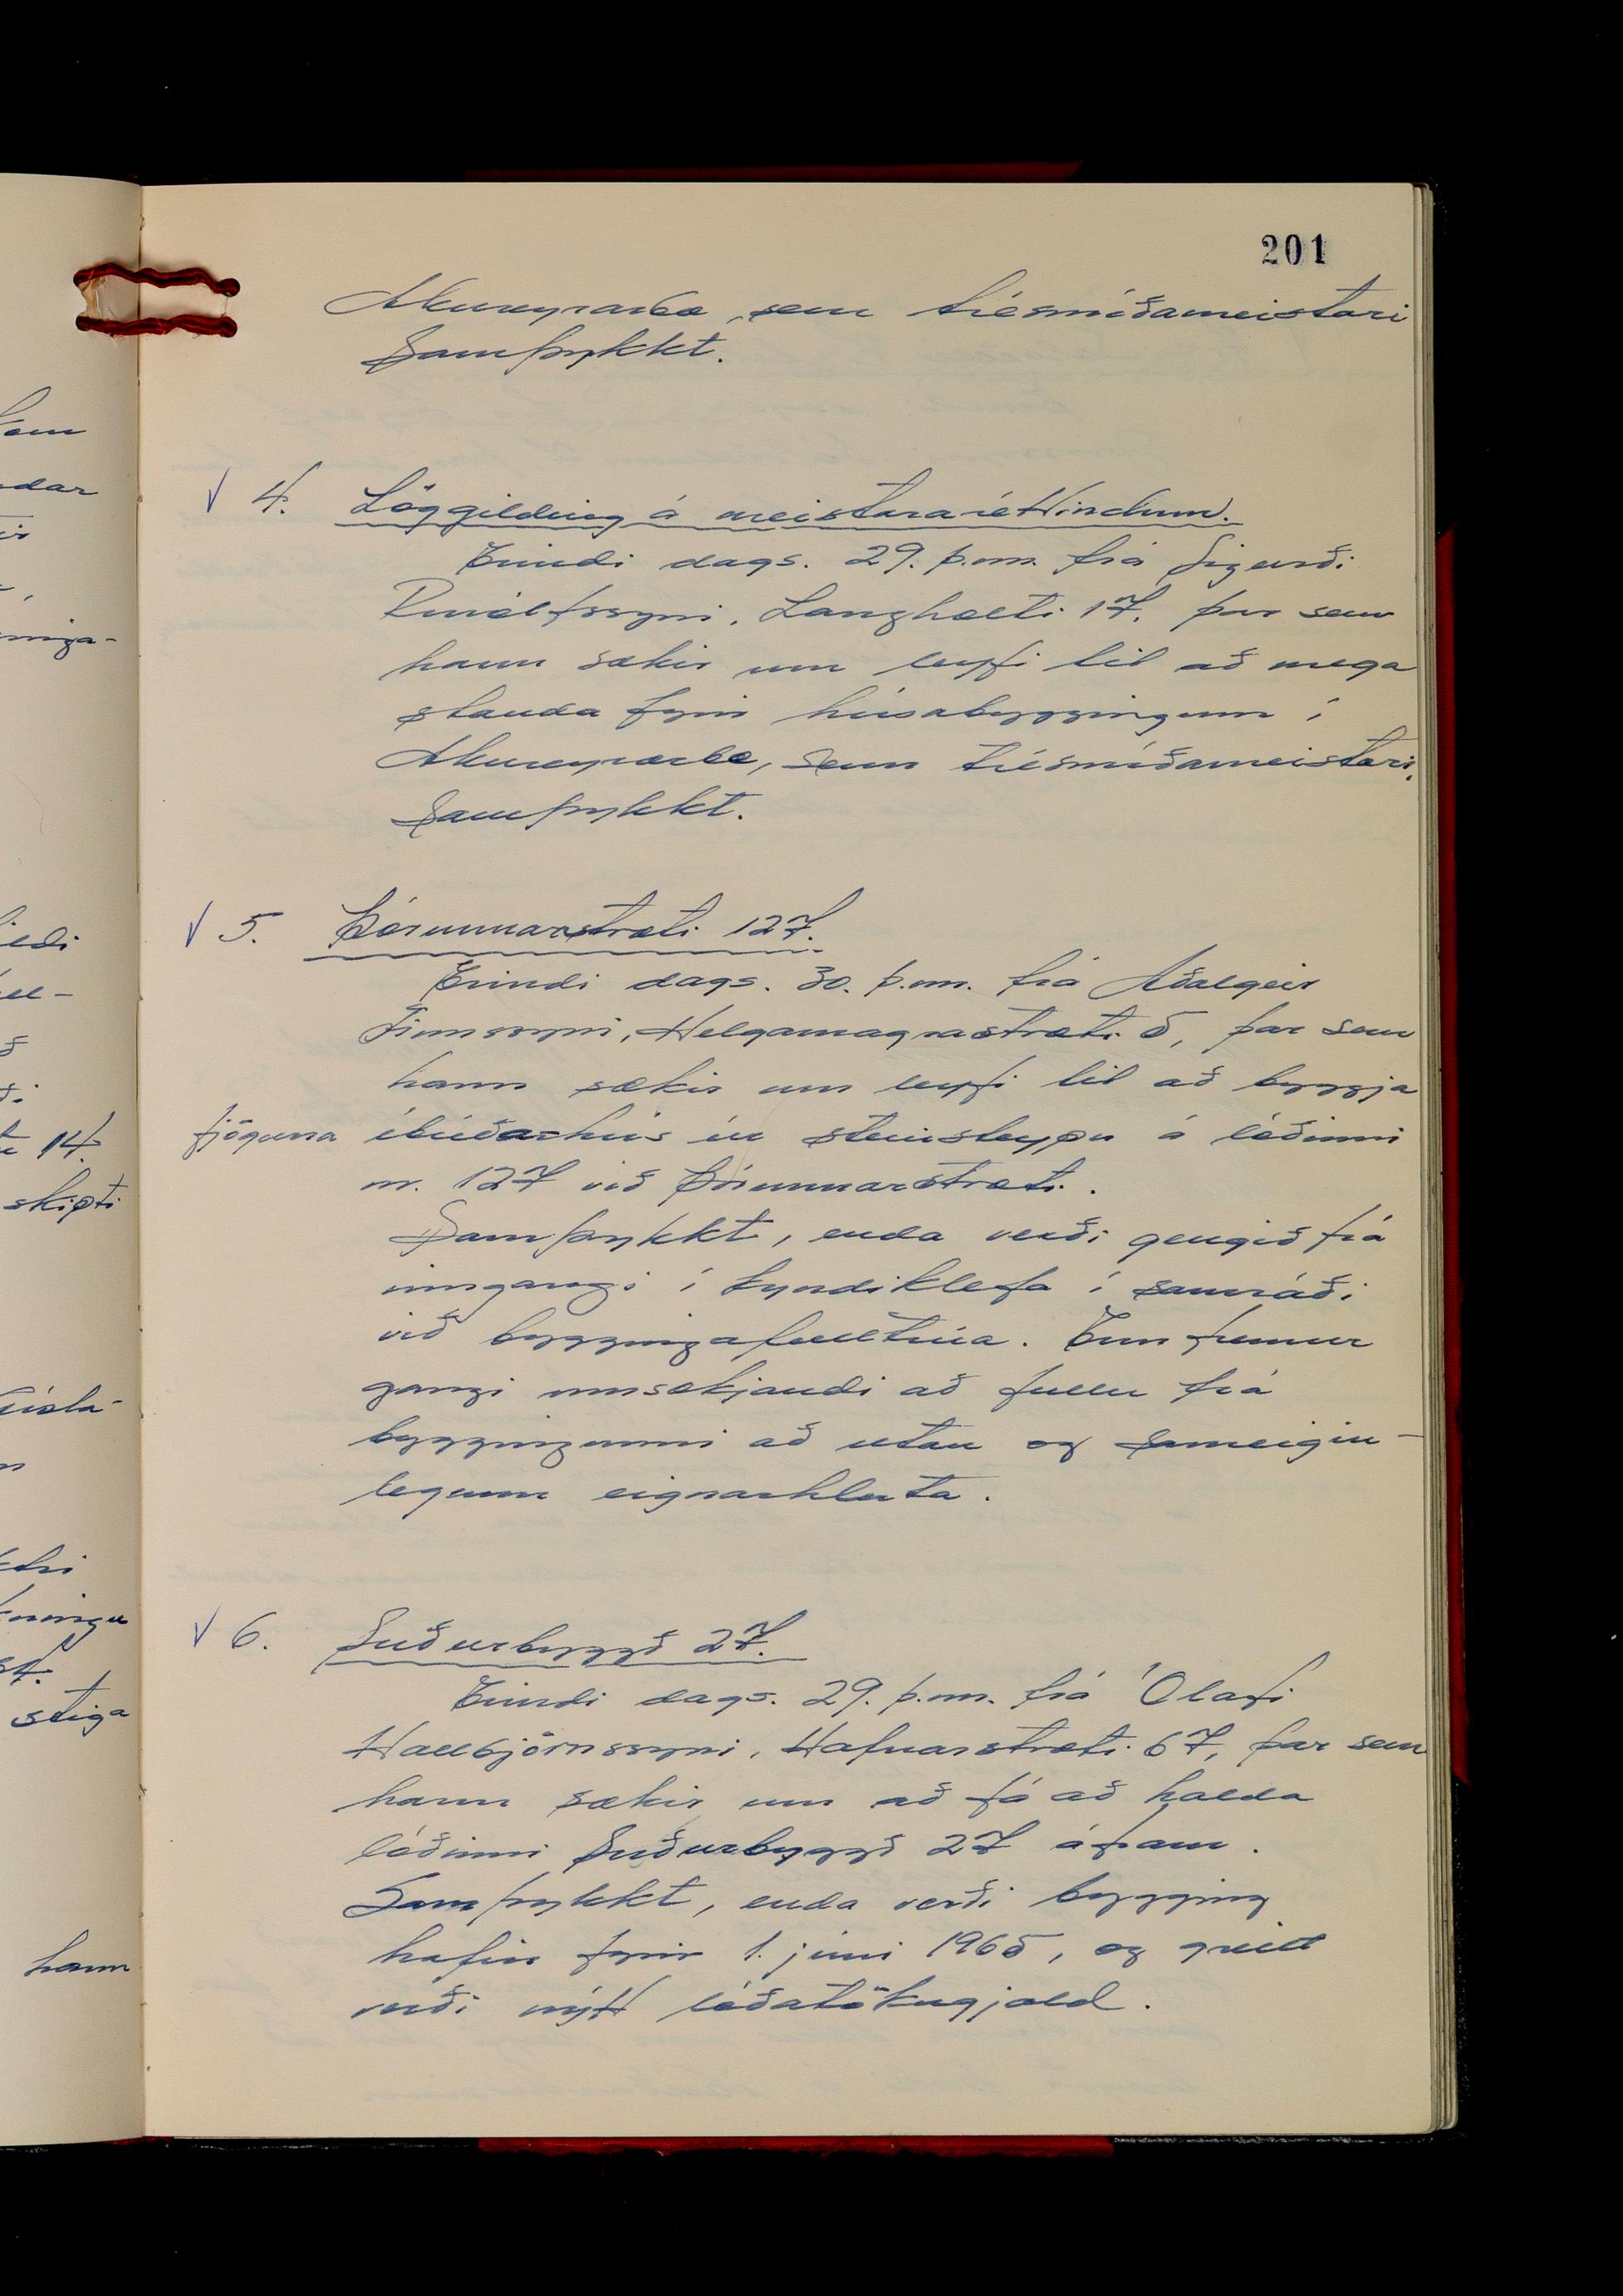 201
Akureyrarbæ, sem trésmíðameistari
Samþykkt.
√ 4. Löggilding á meistararéttindum.
Erindi dags. 29. þ.m. frá Sigurði
Runólfssyni, Langholti 17, þar sem
hann sækir um leyfi til að mega
standa fyrir húsabyggingum í
Akureyrarbæ, sem trésmíðameistari.
Samþykkt.
√ 5. Þórunnarstræti 127.
Erindi dags. 30. þ.m. frá Aðalgeir
Finnssyni, Helgamagrastræti 5, þar sem
hann sækir um leyfi til að byggja
fjögurra íbúðarhús úr steinsteypu á lóðinni
nr. 127 við Þórunnarstræti.
Samþykkt, enda verði gengið frá
inngangi í kyndiklefa í samráði
við byggingafulltrúa. Enn fremur
gangi umsækjandi að fullu frá
byggingunni að utan og sameigin-
legum eignarhluta.
√ 6. Suðurbyggð 27.
Erindi dags. 29. þ.m. frá Ólafi
Hallbjörnssyni, Hafnarstræti 67, þar sem
hann sækir um að fá að halda
lóðinni Suðurbyggð 27 áfram.
Samþykkt, enda verði bygging
hafin fyrir 1. júní 1965, og greitt
verði nýtt lóðatökugjald.